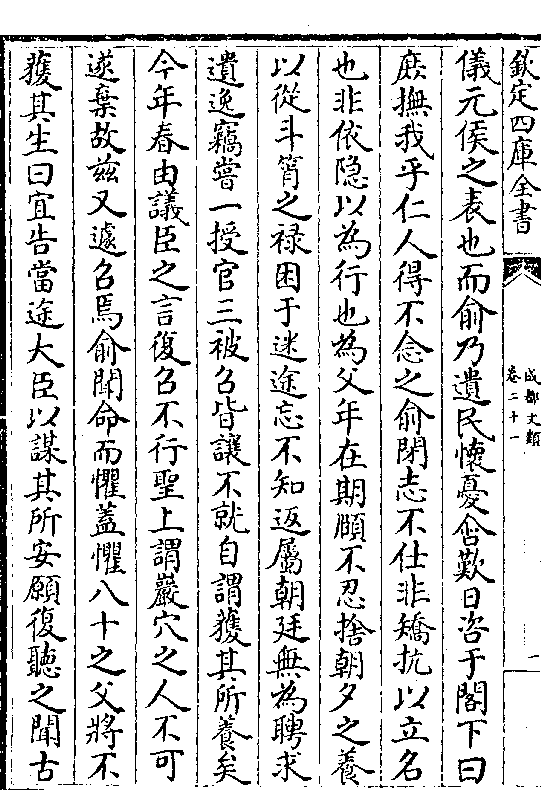 欽定四庫全書
成都文類
卷二十一
一
儀元侯之表也而俞乃遺民懷憂含歎日咨于閣下曰
庶撫我乎仁人得不念之俞閉志不仕非矯抗以立名
也非依隐以為行也為父年在期頤不忍捨朝夕之養
以從斗筲之禄困于迷途忘不知返屬朝廷無為聘求
遺逸竊嘗一授官三被召皆讓不就自謂獲其所養矣
今年春由議臣之言復召不行聖上謂巖穴之人不可
遂棄故兹又遽召焉俞聞命而懼蓋懼八十之父將不
獲其生曰宜告當途大臣以謀其所安願復聽之聞古